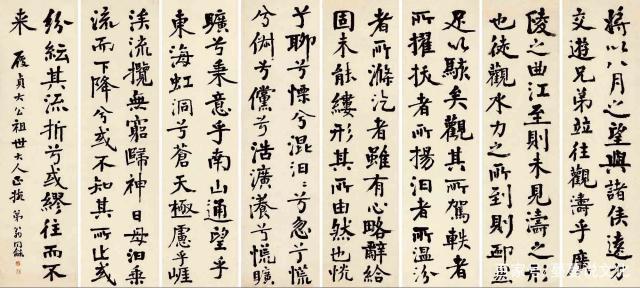 將以八月之望與諸侯遠方
交遊兄弟竝往觀濤乎廣
陵之曲江至則未見濤之形
也徒觀水力之所到則卹然
足以駭矣觀其所駕軼者
所擢拔者所揚汩者所溫汾
者所滌汔者雖有心略辭給
固未能縷形其所由然也恍
兮聊兮慄兮混汩〻兮忽兮慌
兮俶兮儻兮浩瀇瀁兮慌曠
曠兮秉意乎南山通望乎
東海虹洞兮蒼天極慮乎崖
涘流攬無窮歸神日母汩乘
流而下降兮或不知其所止或
紛紜其流折兮或繆往而不
來
貞大公祖世大人正 弟翁同龢